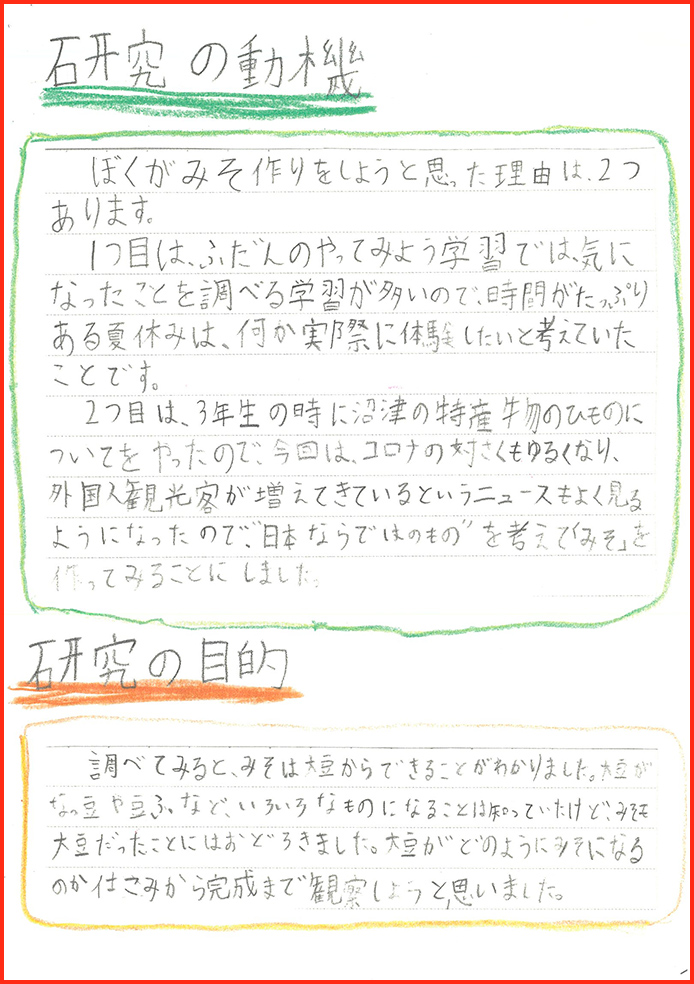 研究の動機
ぼくがみそ作りをしようと思った理由は、2つ
あります。
1つ目は、ふだんのやってみよう学習では、気に
なったことを調べる学習が多いので、時間がたっぷり
ある夏休みは、何か実際に体験したいと考えていた
ことです。
2つ目は、3年生の時に沼津の特産物のひものに
ついてをやったので、今回は、コロナの対さくもゆるくなり、
外国人観光客が増えてきているというニュースもよく見る
ようになったので、"日本ならではのもの"を考えて「みそ」を
作ってみることにしました。
研究の目的
調べてみると、みそは大豆からできることがわかりました。大豆が
なっ豆や豆ふなど、いろいろなものになることは知っていたけど、みそも
大豆だったことにはおどろきました。大豆がどのようにみそになる
のか仕こみから完成まで観察しようと思いました。